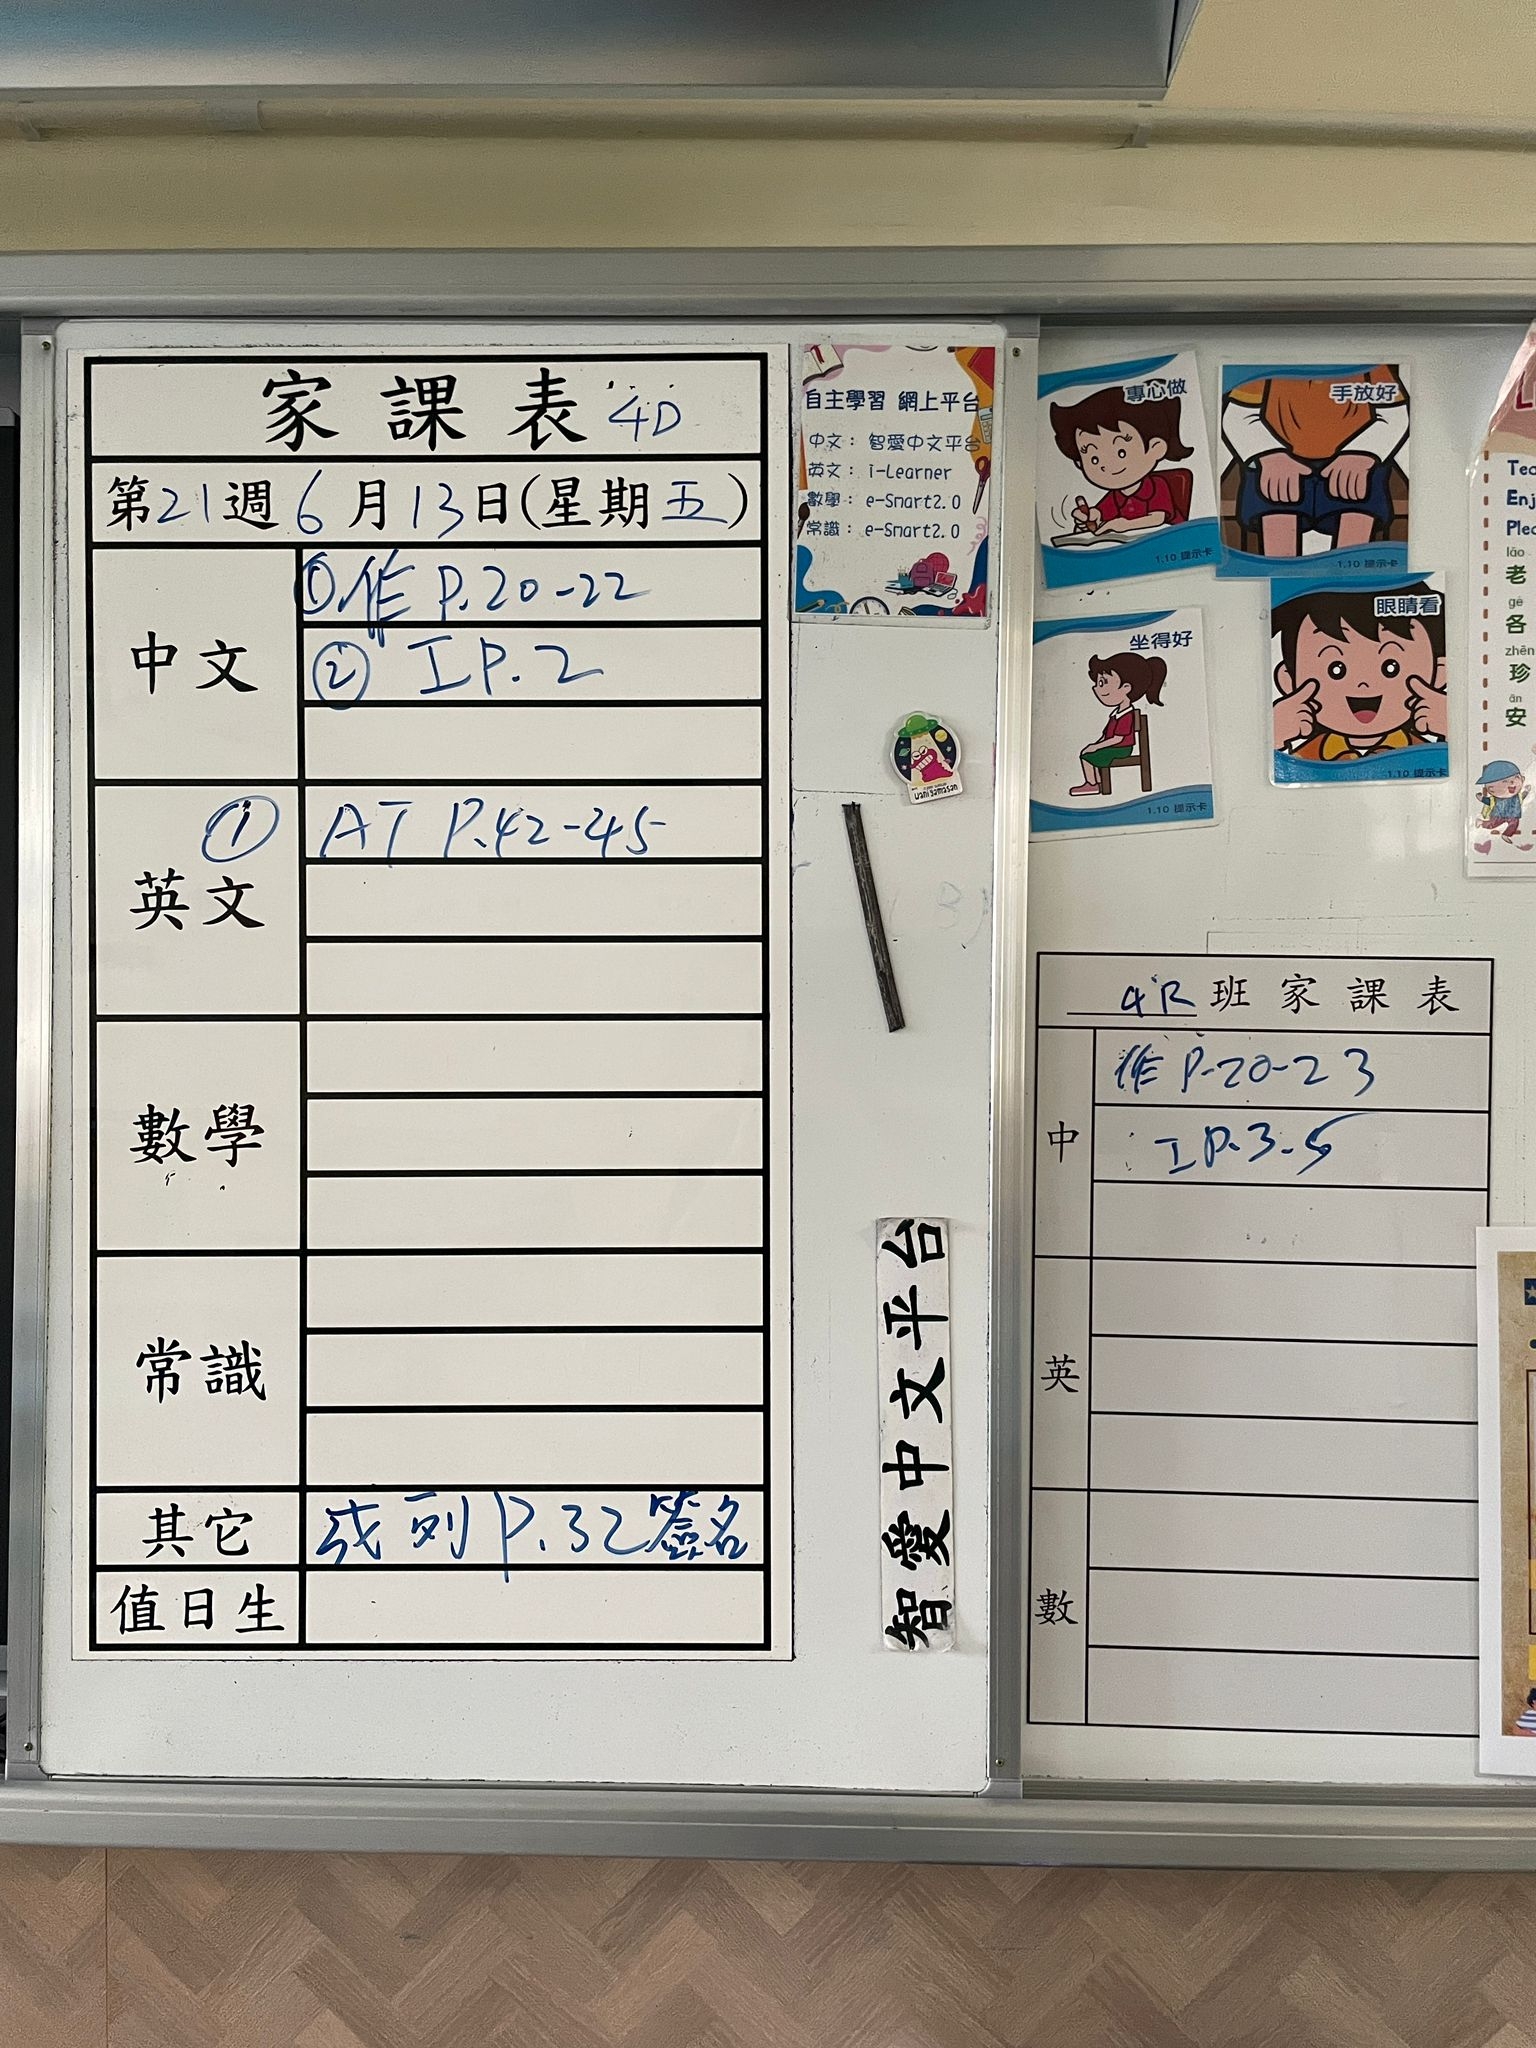 家課表 4D
第21週6月13日(星期五)
中文
①作 P.20-22
② 工 P.2
英文
① AT P.42-45
數學
常識
其它
P.32簽名
值日生
自主學習 網上平台
中文： 智愛中文平台
英文： i-Learner
數學： e-Smart2.0
常識： e-Smart2.0
uanigamasan
智愛中文平台
專心做
1.10 提示卡
手放好
1.10 提示卡
坐得好
1.10 提示卡
眼睛看
1.10 提示卡
Tea
Enj
Plea
lǎo
老
gè
各
zhēn
珍
ān
安
4R 班家課表
中
作 P.20-23
工 P.3-5
英
數